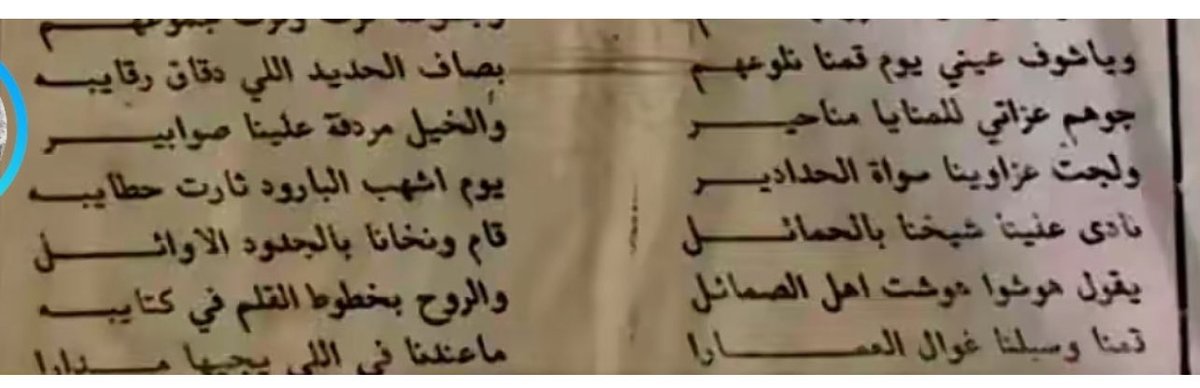 وياشوف عيني يوم قمنا نلوعهم بصاف الحديد اللي دقاق رقايبه
جوهم عزاتي للمنايا مناحير والخيل مردفة علينا صوابير
ولجت عزاوينا سواة الحدادير يوم اشهب البارود ثارت حطايبه
نادى علينا شيخنا بالحمائل قام ونخانا بالجدود الاوائل
يقول هوشوا هوشت اهل الصمائل والروح بخطوط القلم في كتايبه
قمنا وسبلنا غوال العمارا ماعندنا في اللي يجيها مدارا